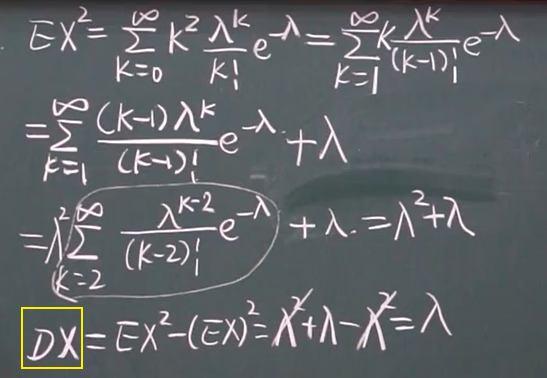 EX² = \sum_{k=0}^{\infty} k² \frac{λ^k}{k!} e^{-λ} = \sum_{k=1}^{\infty} k \frac{λ^k}{(k-1)!} e^{-λ}
= \sum_{k=1}^{\infty} \frac{(k-1)λ^k}{(k-1)!} e^{-λ} + λ
= λ² \sum_{k=2}^{\infty} \frac{λ^{k-2}}{(k-2)!} e^{-λ} + λ = λ² + λ
DX = EX² - (EX)² = λ² + λ - λ² = λ